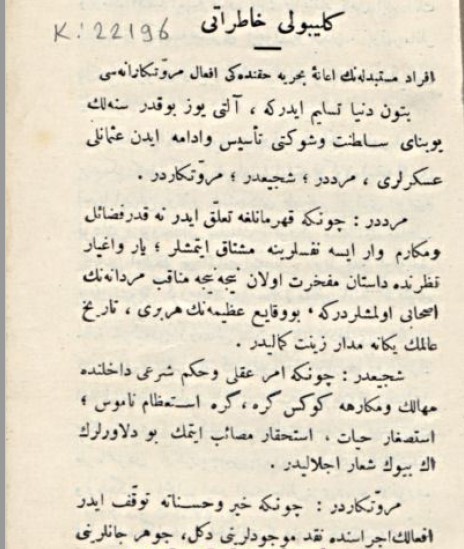 K: 22196
كليبولی خاطراتی
افراد مستبدله‌نك اعانهٔ بحریه حقنده‌كی افعال مروتكارانه‌سی
بتون دنیا تسلیم ایدركه ، آلتی یوز بوقدر سنه‌لك
بوبنای سلطنت وشوكتی تأسیس وادامه ایدن عثمانلی
عسكرلری ، مرددر ؛ شجیعدر ؛ مروتكاردر .
مرددر : چونكه قهرمانلغه تعلق ایدر نه قدر فضائل
ومكارم وار ایسه نفسلرینه مشتاق ایتمشلر ؛ یار واغیار
نظرنده داستان مفخرت اولان نیجه نیجه مناقب مردانه‌نك
اصحابی اولمشلردركه ، بووقایع عظیمه‌نك هربری ، تاریخ
عالمك یكانه مدار زینت كمالیدر .
شجیعدر : چونكه امر عقلی وحكم شرعی داخلنده
مهالك ومكارهه كوكس گره ، گره استعظام ناموس ؛
استصغار حیات ، استحقار مصائب ایتمك بو دلاورلرك
اك بیوك شعار اجلالیدر .
مروتكاردر : چونكه خیر وحسناته توقف ایدر
افعالك اجراسنده نقد موجودلرینی دكل، جوهر جانلرینی